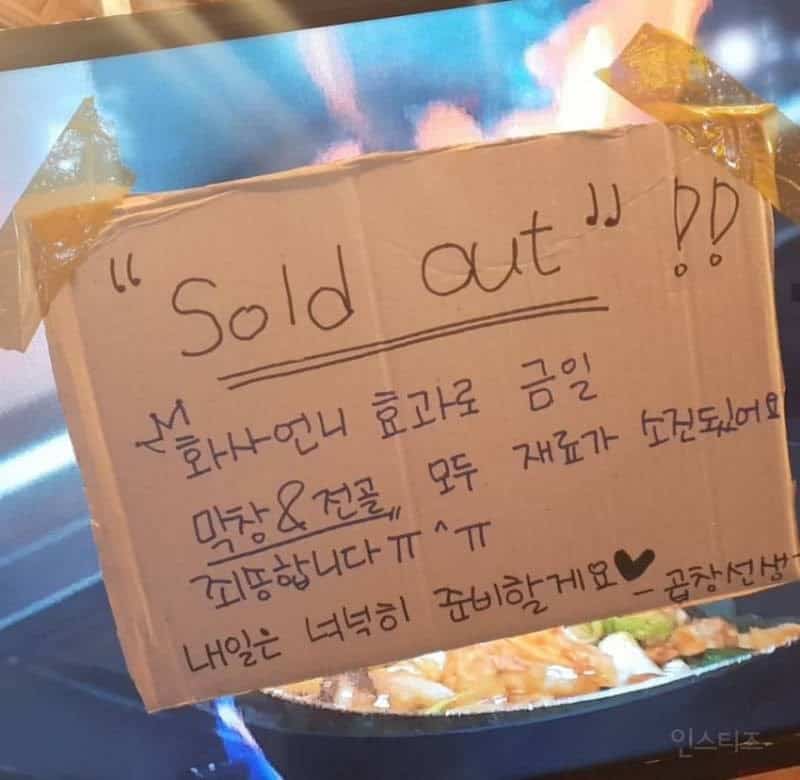 “Sold out” !!
화사언니 효과로 금일
막창&전골 모두 재료가 소진됐어요
죄송합니다ㅠ^ㅠ
내일은 넉넉히 준비할게요♥ - 곱창선생-
인스티즈